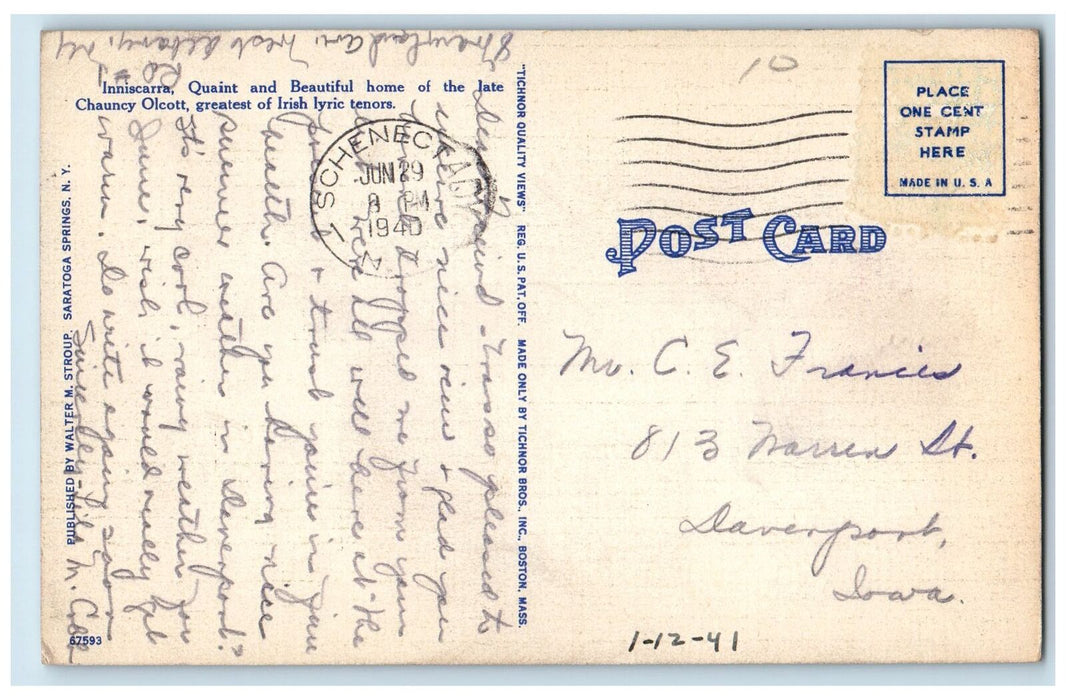 Inniscarra, Quaint and Beautiful home of the late
Chauncy Olcott, greatest of Irish lyric tenors.
PUBLISHED BY WALTER M. STROUP. SARATOGA SPRINGS, N. Y.
"TICHNOR QUALITY VIEWS" REG. U. S. PAT. OFF. MADE ONLY BY TICHNOR BROS., INC., BOSTON, MASS.
67593
10
PLACE
ONE CENT
STAMP
HERE
MADE IN U. S. A
POST CARD
SCHENECTADY
JUN 29
8 PM
1940
N.Y.
Mr. C. E. Francis
813 Warren St.
Davenport,
Iowa.
1-12-41
Dear Friend - I was so pleased to
receive nice view & glad you
dropped me from your
here. All well here at the
& trust you're in fine
health. Are you having nice
summer weather in Davenport?
It's very cool, rainy weather for
June, wish it would really get
warm. Do write again soon
Sincerely -
West Albany, NY